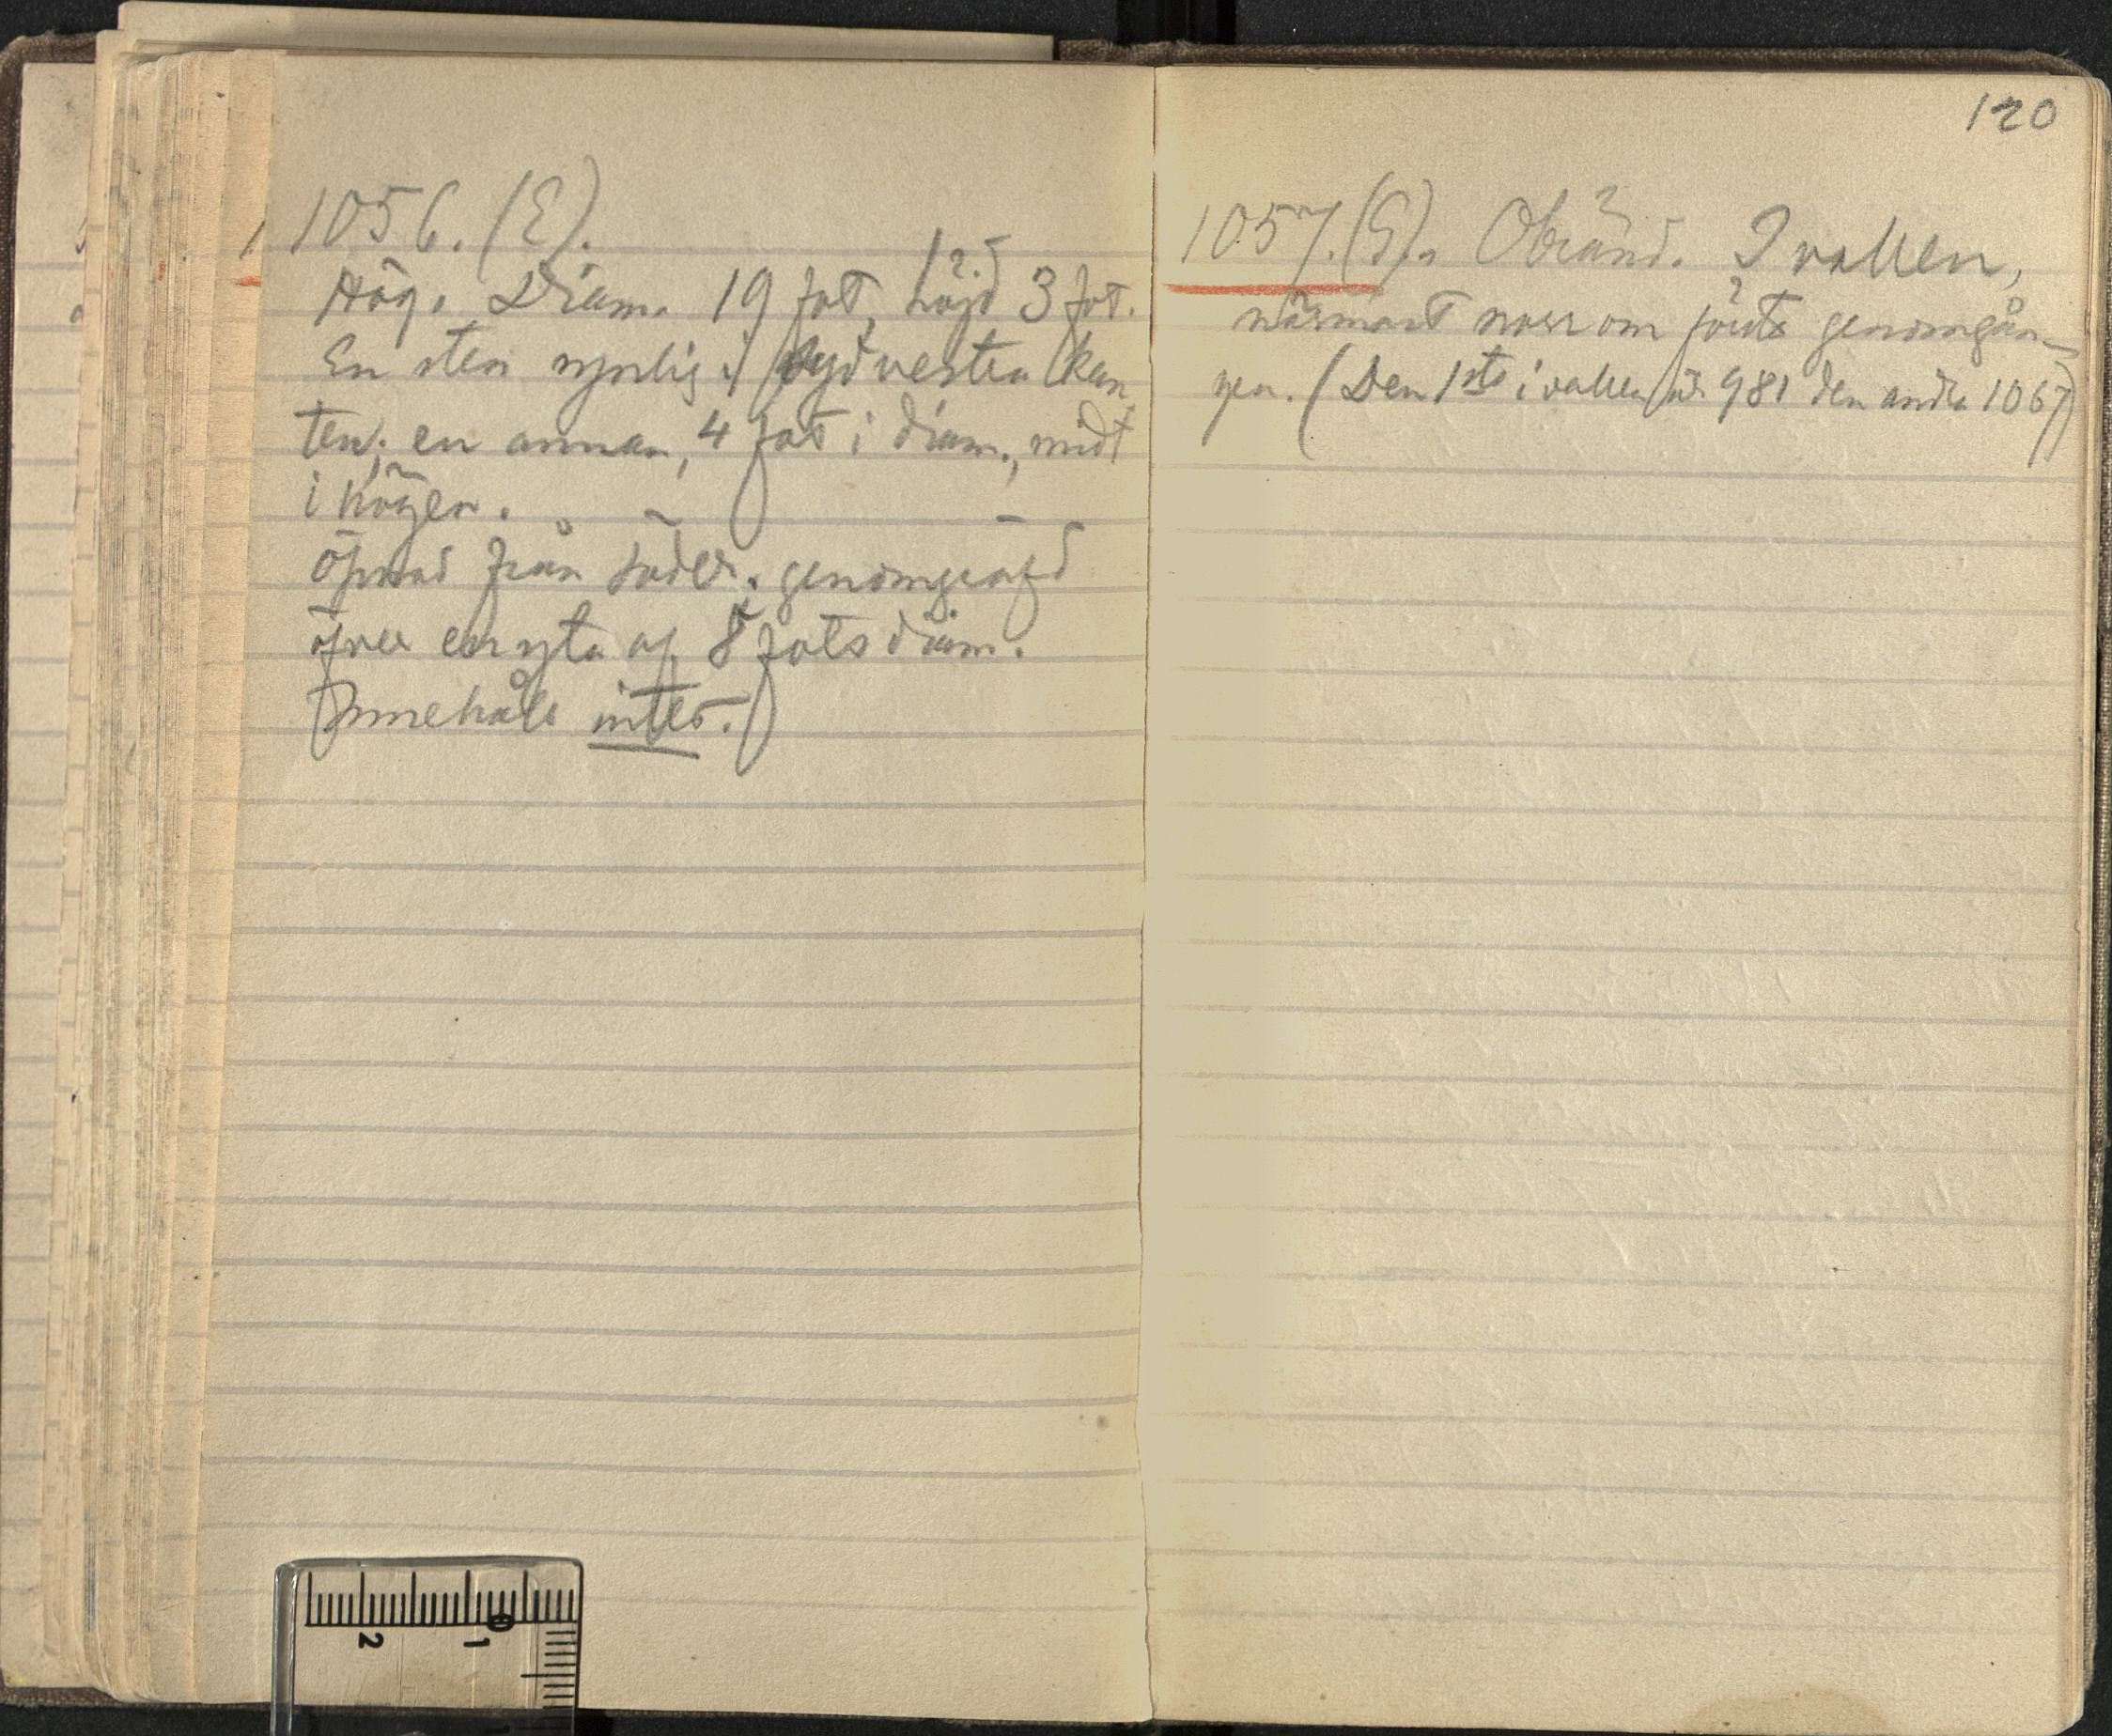 1056. (E).
Hög. Diam. 19 fot, höjd 3 fot.
En sten synlig i sydvestra kan
ten; en annan, 4 fot i diam., midt
i högen.
Öpnad från söder; genomgräfd
öfver en yta af 8 fots diam.
Innehöll intet.
120
1057. (E). Obränd. I vallen,
närmast norr om första genomgån-
gen. (Den 1sta i vallen är 981 den andra 1067)
2 1 0